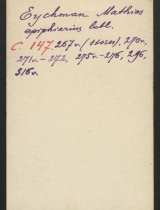 Eyckman Mathias
epiphiarius bubl.
C. 147. 267v. (uxores), 270v,
271v-272, 275v-276, 296,
316v.